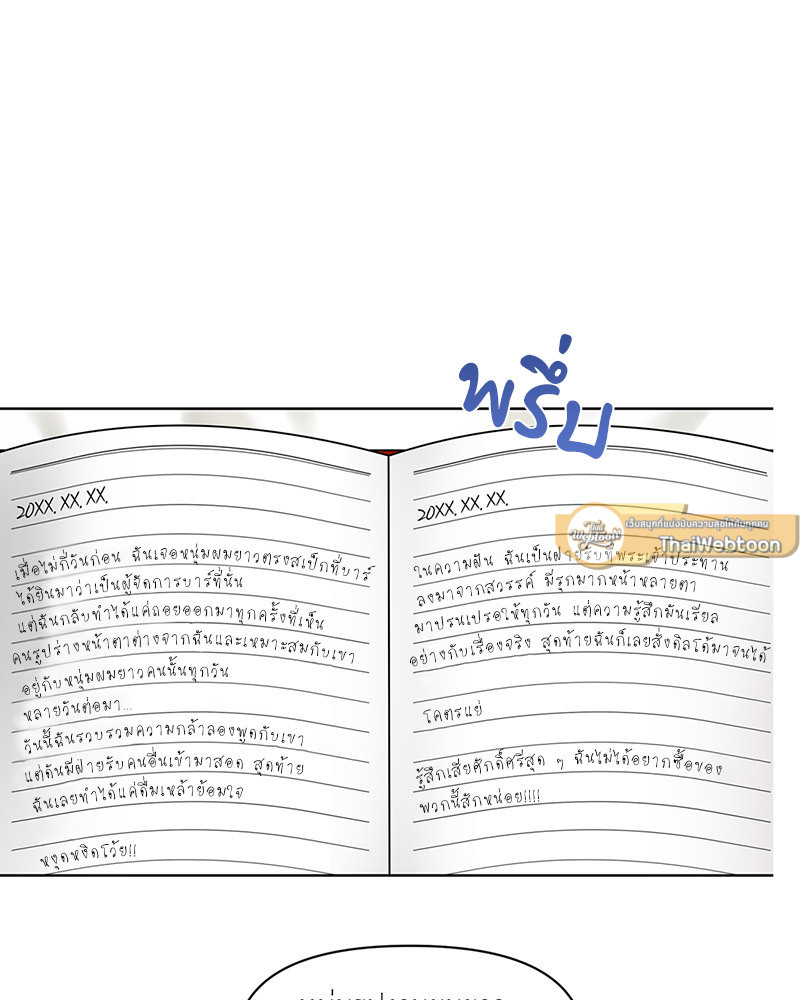 พรึ่บ
20XX. XX. XX.
เมื่อไม่กี่วันก่อน ฉันเจอหนุ่มผมยาวตรงสเป็กที่บาร์
ได้ยินมาว่าเป็นผู้จัดการบาร์ที่นั่น
แต่ฉันกลับทำได้แค่ถอยออกมาทุกครั้งที่เห็น
คนรูปร่างหน้าตาต่างจากฉันและเหมาะสมกับเขา
อยู่กับหนุ่มผมยาวคนนั้นทุกวัน
หลายวันต่อมา...
วันนี้ฉันรวบรวมความกล้าลองพูดกับเขา
แต่ดันมีฝ่ายรับคนอื่นเข้ามาสอด สุดท้าย
ฉันเลยทำได้แค่ดื่มเหล้าย้อมใจ
หงุดหงิดโว้ย!!
20XX. XX. XX.
เว็บสนุกที่แบ่งปันความสุขให้กับทุกคน
Thai Webtoon
ThaiWebtoon
ในความฝัน ฉันเป็นฝ่ายรับที่พระเจ้าประทาน
ลงมาจากสวรรค์ มีรุกมากหน้าหลายตา
มาปรนเปรอให้ทุกวัน แต่ความรู้สึกมันเรียล
อย่างกับเรื่องจริง สุดท้ายฉันก็เลยสั่งดิลโด้มาจนได้
โคตรแย่
รู้สึกเสียศักดิ์ศรีสุด ๆ ฉันไม่ได้อยากซื้อของ
พวกนี้สักหน่อย!!!!